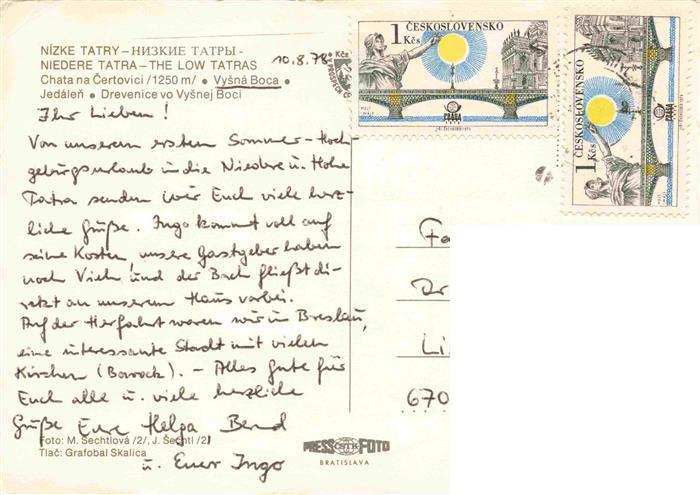 NÍZKE TATRY – НИЗКИЕ ТАТРЫ -
NIEDERE TATRA – THE LOW TATRAS
Chata na Čertovici /1250 m/ • Vyšná Boca •
Jedáleň • Drevenice vo Vyšnej Boci
10.8.78
Kčs
Ihr Lieben!
Von unserem ersten Sommer-Hoch-
gebirgsurlaub in die Niedere u. Hohe
Tatra senden wir Euch viele herz-
liche Grüße. Ingo kommt voll auf
seine Kosten, unsere Gastgeber haben
noch Vieh und der Bach fließt di-
rekt an unserem Haus vorbei.
Auf der Herfahrt waren wir in Breslau,
eine interessante Stadt mit vielen
Kirchen (Barock). – Alles gute für
Euch alle u. viele herzliche
Grüße Eure Helga Bernd
u. Euer Ingo
Foto: M. Sechtlová /2/, J. Šechtl /2/
Tlač: Grafobal Skalica
PRESS ČSTK FOTO
BRATISLAVA
1 Kčs
ČESKOSLOVENSKO
PRAHA
1 Kčs
ČESKOSLOVENSKO
PRAHA
Fa
Dr
Li
670